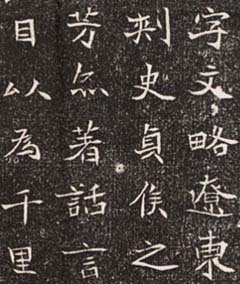 字文略遼東
刺史貞侯之
芳烝著話言
目以為千里